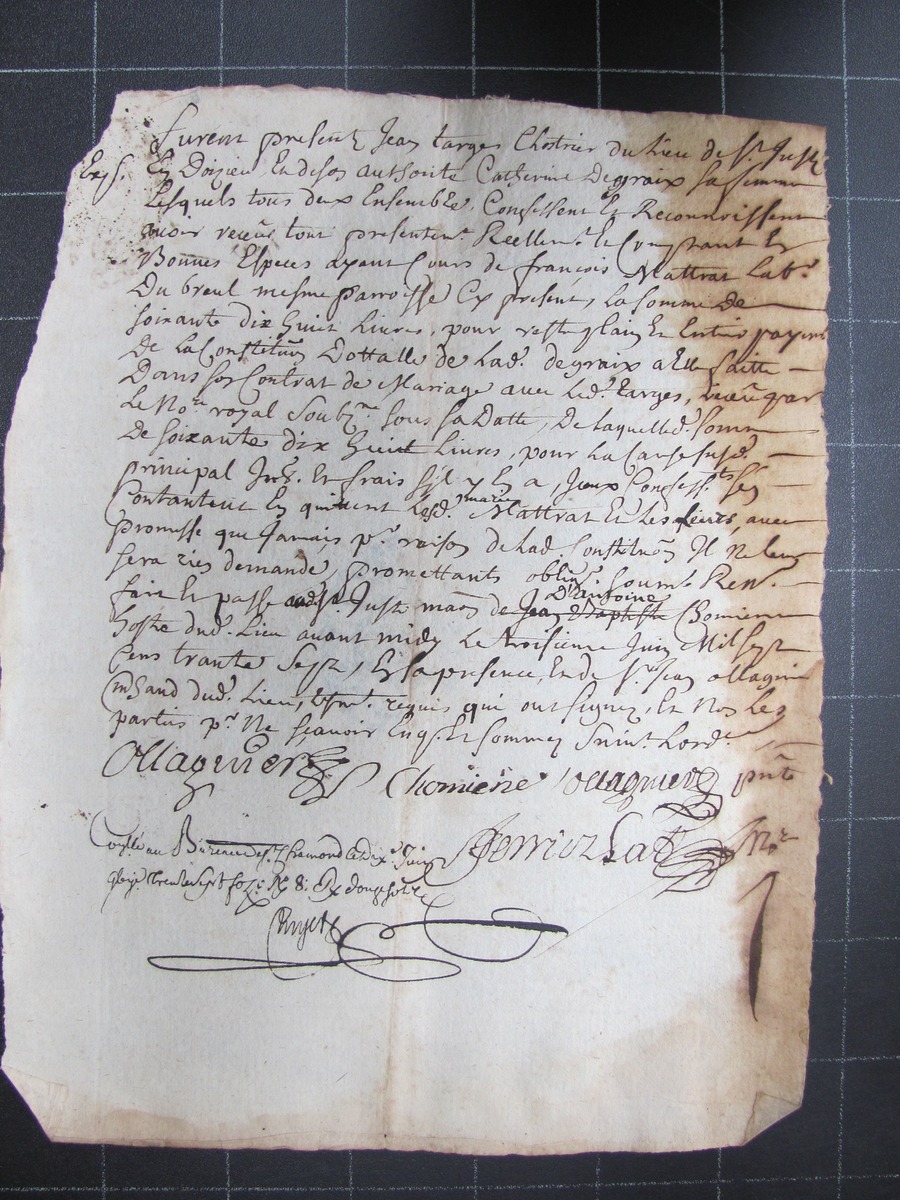 Furent present Jean Targes Chastrier du lieu de St. Just
Exp.
En Doizieu, En de son authorité Catherine Degraix sa femme
Lesquels tous deux Ensemble, Confessent Et Reconnoissent
avoir receu tout presentem.t Reellem.t le Comptant En
Bonnes Especes ayant Cours de françois Mattrat Lab.r
Du breul mesme parroisse Cy present, la somme De
soixante dix huit livres, pour reste plain Et Entier payem
De la Constitution Dottalle de Lad. degraix a Elle faitte
Dans son Contrat de Mariage avec led. Targes, receu par
Le No.re royal Soubz.ne sous sa Datte, De laquelle d. somme
De soixante dix huit Livres, pour la Cause susd.
principal Int. Et frais s'il y En a, Iceux Confess.ts s'en
Contantent En quittent Lesd. mariés Mattrat Et les siens, avec
promesse que Jamais p.r raison de lad. Constitution Il ne leur
sera rien demandé, promettants oblig. soum. Ren.
fait Et passé aud. St. Just maon de Jean Baptiste d'antoine Chomiene
hoste dud. Lieu avant midy Le troisieme Juin Mil sept
Cens trante Sept, En la presence, En de Sr. Jean ollagnier
mchand dud. Lieu, requis qui ont signez, Et Non Les
parties p.r Ne sçavoir Enq. Et sommez Suiv.t Lord.
Ollagnier Chomiene ollagnier pnt
Coñlé au Bureau de St. Chamond le dix Juin
trente sept fo. douze sols
No.re